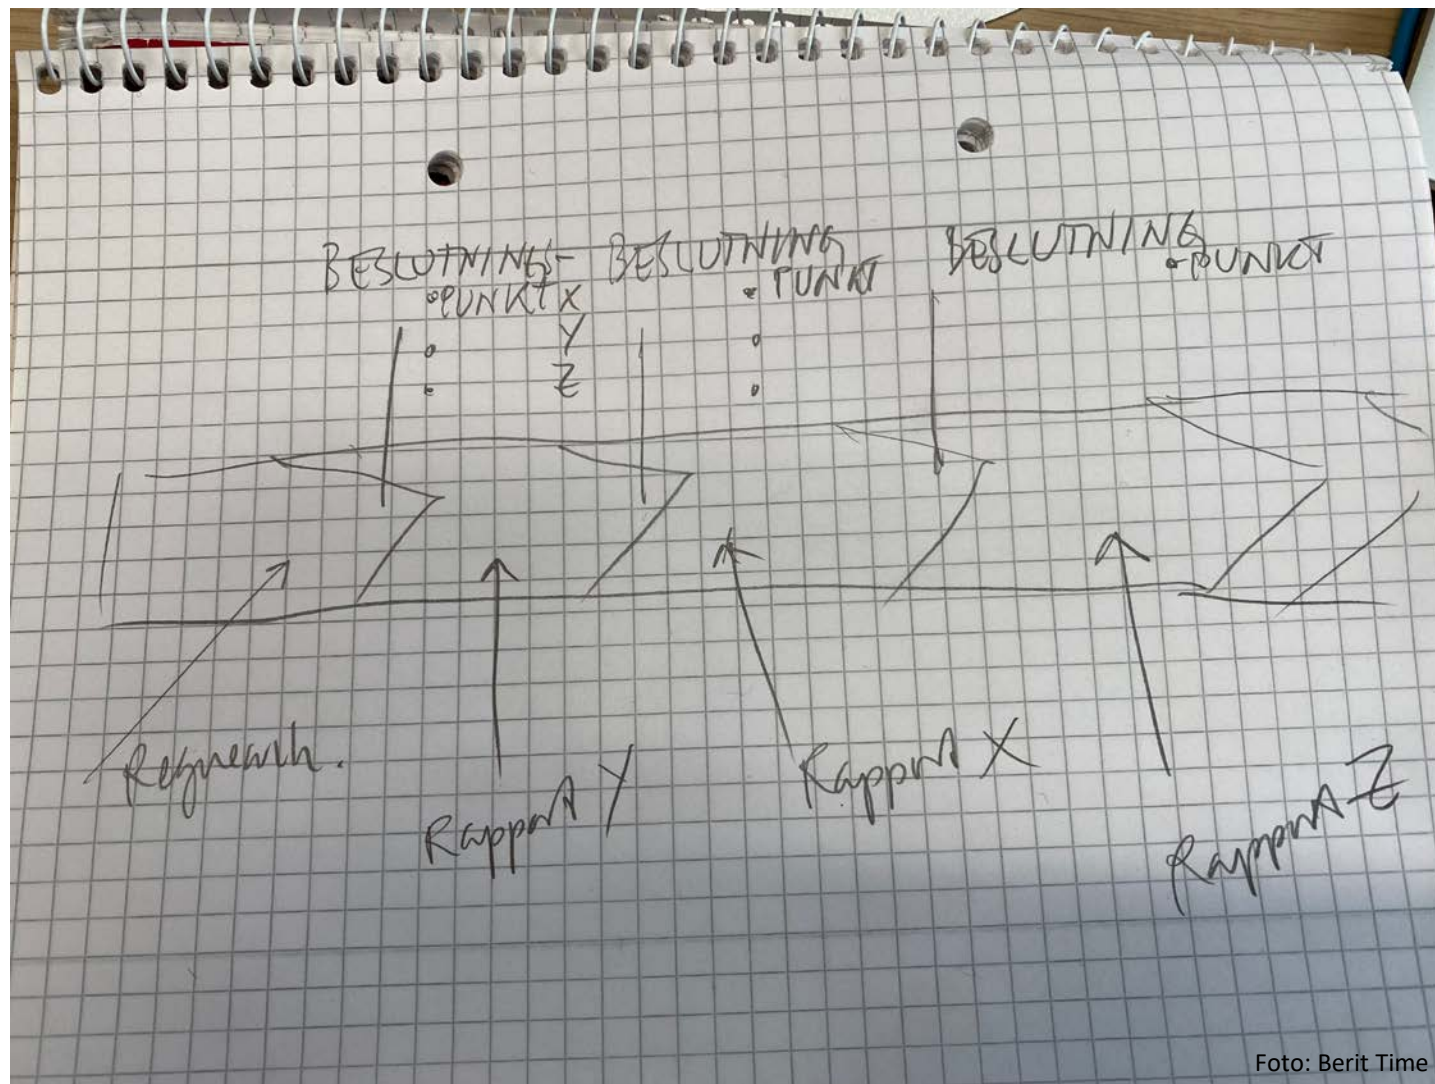 BESLUTNINGS-
PUNKT X
Y
Z
BESLUTNING
PUNKT
BESLUTNING
PUNKT
Regneark.
Rapport Y
Rapport X
Rapport Z
Foto: Berit Time